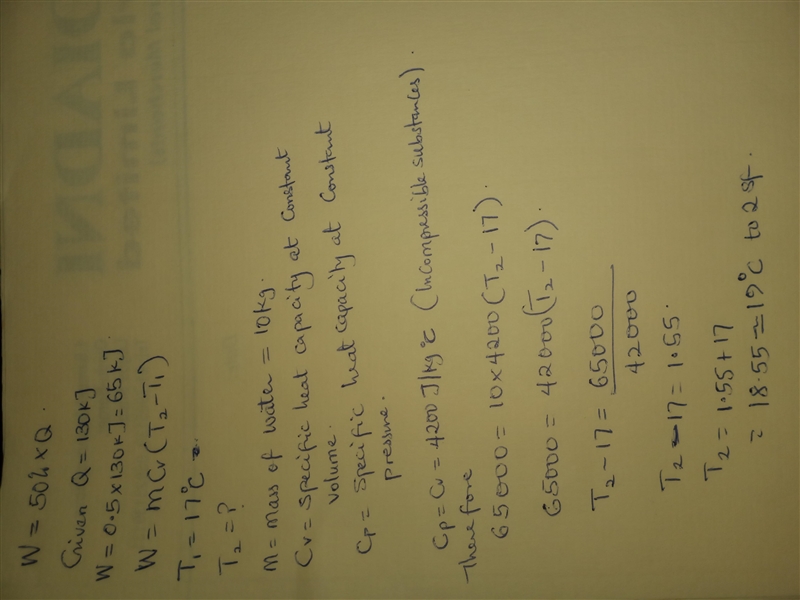 W = 50% x Q.
Given Q = 130KJ
W = 0.5 x 130KJ = 65KJ.
W = mCv (T2 - T1)
T1 = 17°C
T2 = ?
M = mass of water = 10kg.
Cv = specific heat capacity at constant
volume.
Cp = specific heat capacity at constant
pressure.
Cp = Cv = 4200 J/kg°C (Incompressible substances).
Therefore
65000 = 10 x 4200 (T2 - 17).
65000 = 42000 (T2 - 17).
T2 - 17 = 65000
42000
T2 - 17 = 1.55.
T2 = 1.55 + 17
= 18.55 = 19°C to 2 sf.
DIADNE
Limited